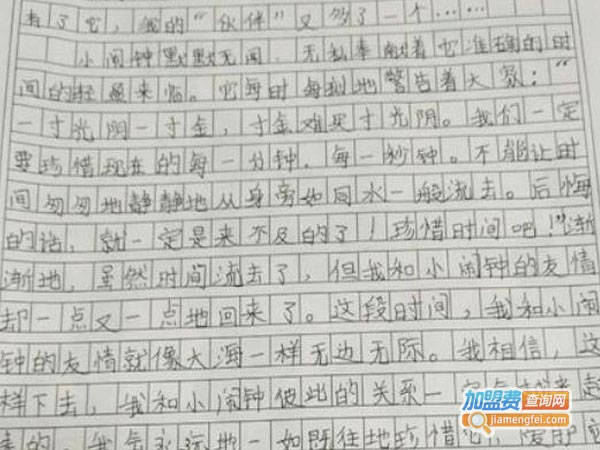 有了它，我的“伙伴”又多了一个……
小闹钟默默无闻，无私奉献着它准确的时
间的轻易来临。它每时每刻地警告着大家：“
一寸光阴一寸金，寸金难买寸光阴。我们一定
要珍惜现在的每一分钟，每一秒钟。不能让时
间匆匆地静静地从身旁如同水一般流去。后悔
的话，就一定是来不及的了！珍惜时间吧！”渐
渐地，虽然时间流去了，但我和小闹钟的友情
却一点又一点地回来了。这段时间，我和小闹
钟的友情就像大海一样无边无际。我相信，这
样下去，我和小闹钟彼此的关系一定
来的。我会永远地一如既往地珍惜它，爱护它
加盟费查询网
jiamengfei.com